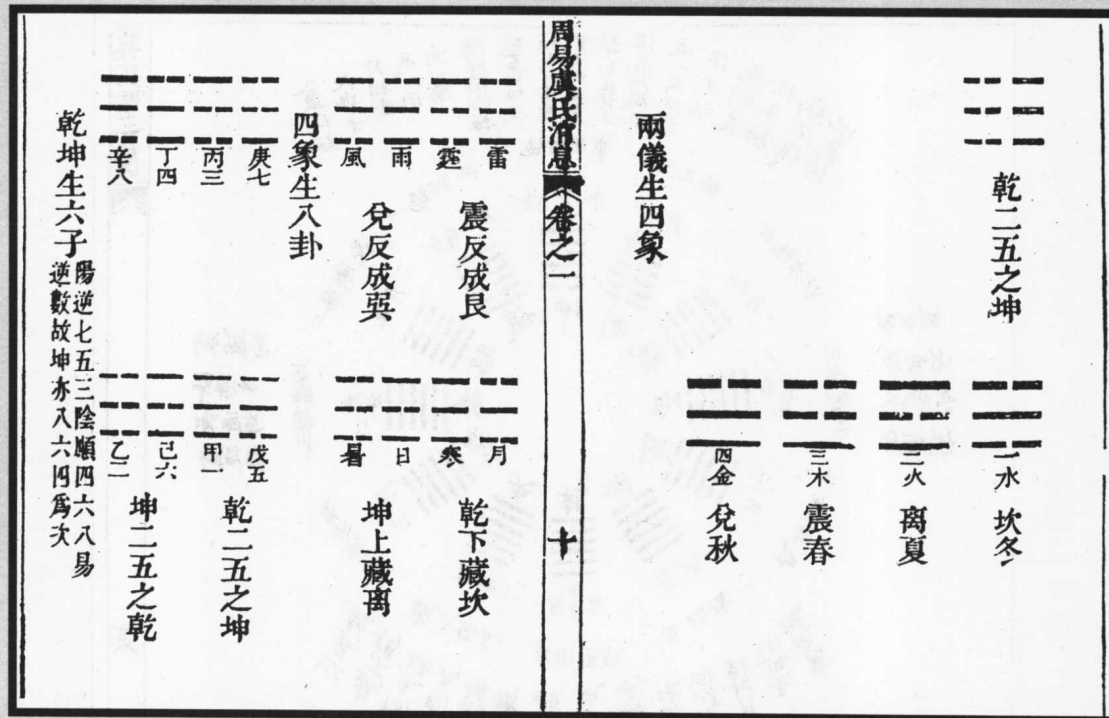 乾二五之坤
一水 坎冬
二火 离夏
三木 震春
四金 兌秋
兩儀生四象
周易虞氏消息 卷之一 十
雷 霆 雨 風
震反成艮
兌反成巽
月 寒 日 暑
乾下藏坎
坤上藏离
四象生八卦
庚七 丙三 丁四 辛八
戊五 甲一 己六 乙二
乾二五之坤
坤二五之乾
乾坤生六子
陽逆七五三陰順四六八易
逆數故坤亦八六四爲次